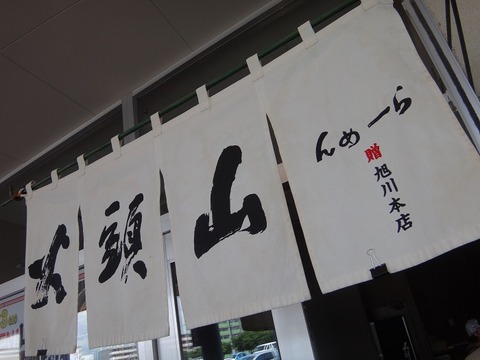 らーめん
贈 旭川本店
山頭火